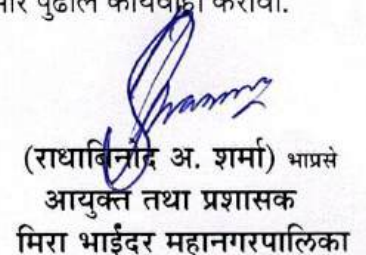 पुढील कार्यवाही करावी.
(राधाबिनोद अ. शर्मा) भाप्रसे
आयुक्त तथा प्रशासक
मिरा भाईंदर महानगरपालिका